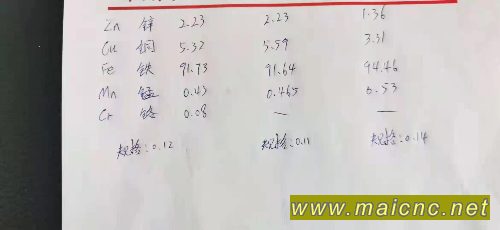 Zn 锌 2.23 2.23 1.36
Cu 铜 5.32 5.59 3.31
Fe 铁 91.73 91.64 94.46
Mn 锰 0.43 0.465 0.53
Cr 铬 0.08 — —
规格:0.12 规格:0.11 规格:0.14
www.maicnc.net